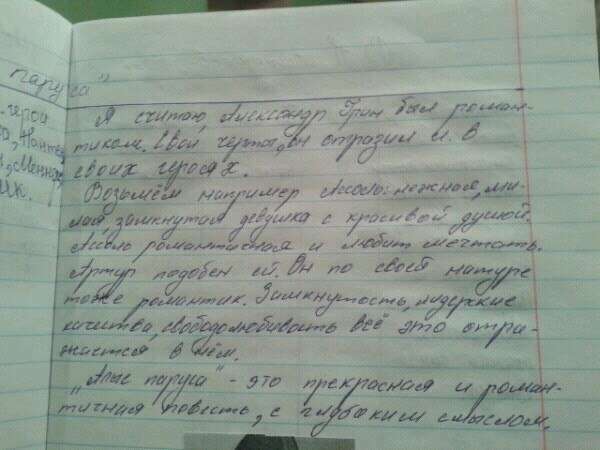 паруса"
герои
Я считаю, Александр Грин был роман-
тиком. Свои черты, он отразил и в
своих героях.
Возьмём например Ассоль: нежная, ми-
лая, замкнутая девушка с красивой душой.
Ассоль романтичная и любит мечтать.
Артур подобен ей. Он по своей натуре
тоже романтик. Замкнутость, лидерские
качества, свободолюбивость всё это отра-
жается в нём.
"Алые паруса" - это прекрасная и роман-
тичная повесть, с глубоким смыслом.